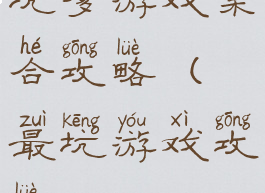 坑爹游戏集
hé gōng lüè
合攻略（
zuì kēng yóu xì gōng
最坑游戏攻
lüè